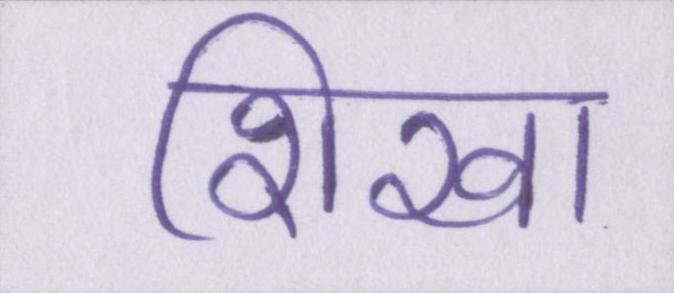 शिखा